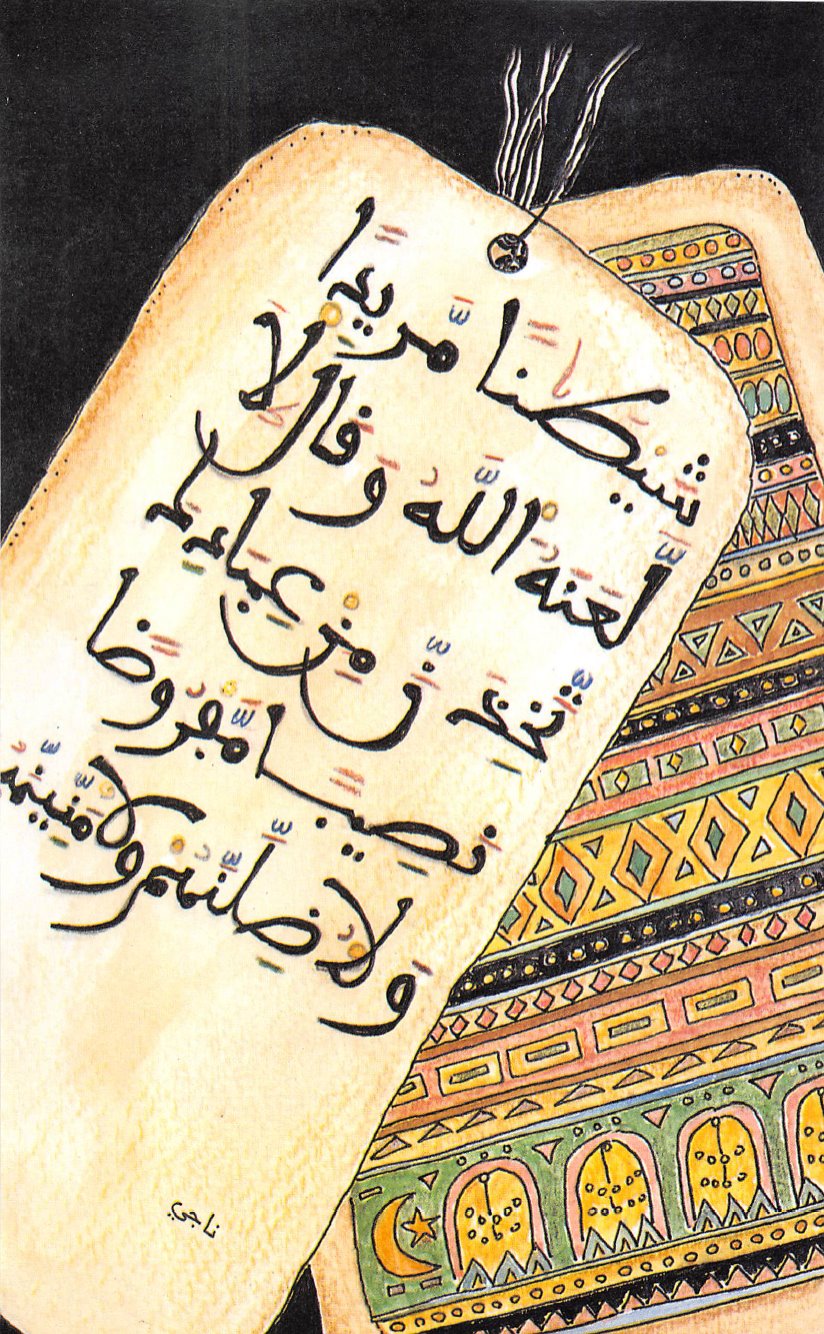 شَيْطَٰنًا مَّرِيدًا
لَّعَنَهُ اُللَّهُ وَقَالَ لَأ
تَّخِذَنَّ مِنْ عِبَادِكَ
نَصِيبًا مَّفْرُوضًا
وَلَأُضِلَّنَّهُمْ وَلَأُمَنِّيَنَّهُ
ناجي